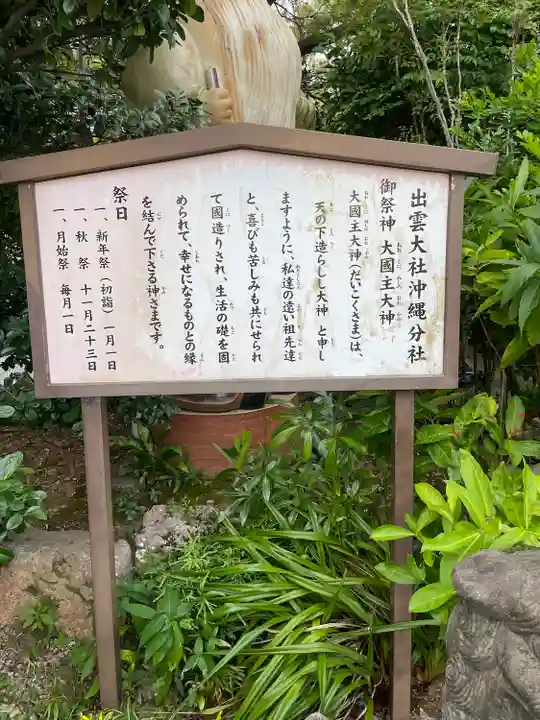 出雲大社沖縄分社
御祭神 大國主大神
大國主大神(だいこくさま)は、
天の下造らしし大神 と申し
ますように、私達の遠い祖先達
と、喜びも苦しみも共にせられ
て國造りされ、生活の礎を固
められて、幸せになるものとの縁
を結んで下さる神さまです。
祭日
一、新年祭(初詣)一月一日
一、秋祭 十一月二十三日
一、月始祭 毎月一日